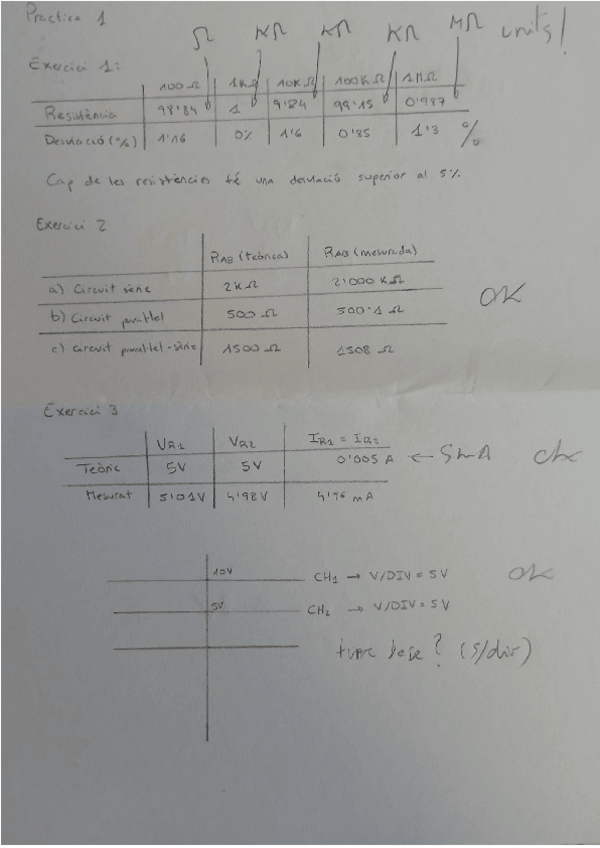 Practica 1
Ω KΩ KΩ KΩ MΩ units!
Exercici 1:
100 Ω 1KΩ 10KΩ 100KΩ 1MΩ
Resistència 98'84 1 9'84 99'15 0'987
Desviació (%) 1'16 0% 1'6 0'85 1'3 %
Cap de les resistències té una desviació superior al 5%.
Exercici 2
RAB (teòrica) RAB (mesurada)
a) Circuit sèrie 2KΩ 2'000 KΩ OK
b) Circuit paral·lel 500 Ω 500'1 Ω
c) Circuit paral·lel-sèrie 1500 Ω 1508 Ω
Exercici 3
VR1 VR2 IR1 = IR2
Teòric 5V 5V 0'005 A ← 5mA OK
Mesurat 5'01V 4'98V 4'96 mA
10V CH1 → V/DIV = 5V OK
5V CH2 → V/DIV = 5V
time base? (s/div)